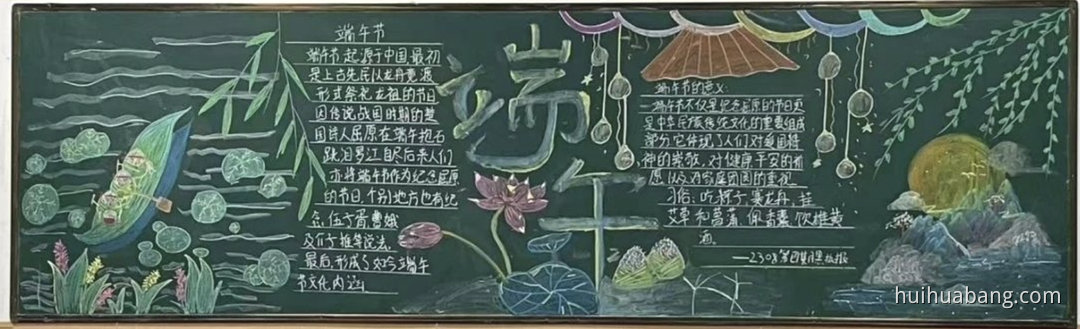 端午节
端午节起源于中国最初
是上古先民以龙舟竞渡
形式祭祀龙祖的节日
因传说战国时期的楚
国诗人屈原在端午抱石
跳汨罗江自尽后来人们
亦将端午节作为纪念屈原
的节日,个别地方也有纪
念,伍子胥曹娥
及介子推等说法,
最后,形成了如今端午
节文化内涵
端午
端午节的意义:
端午节不仅是纪念屈原的节日更
是中华民族传统文化的重要组成
部分,它体现了人们对爱国精
神的崇敬,对健康平安的祈
愿以及对家庭团圆的重视
习俗:吃粽子赛龙舟,挂
艾草和菖蒲,佩香囊饮雄黄
酒。
——2303第四期黑板报
huihuabang.com